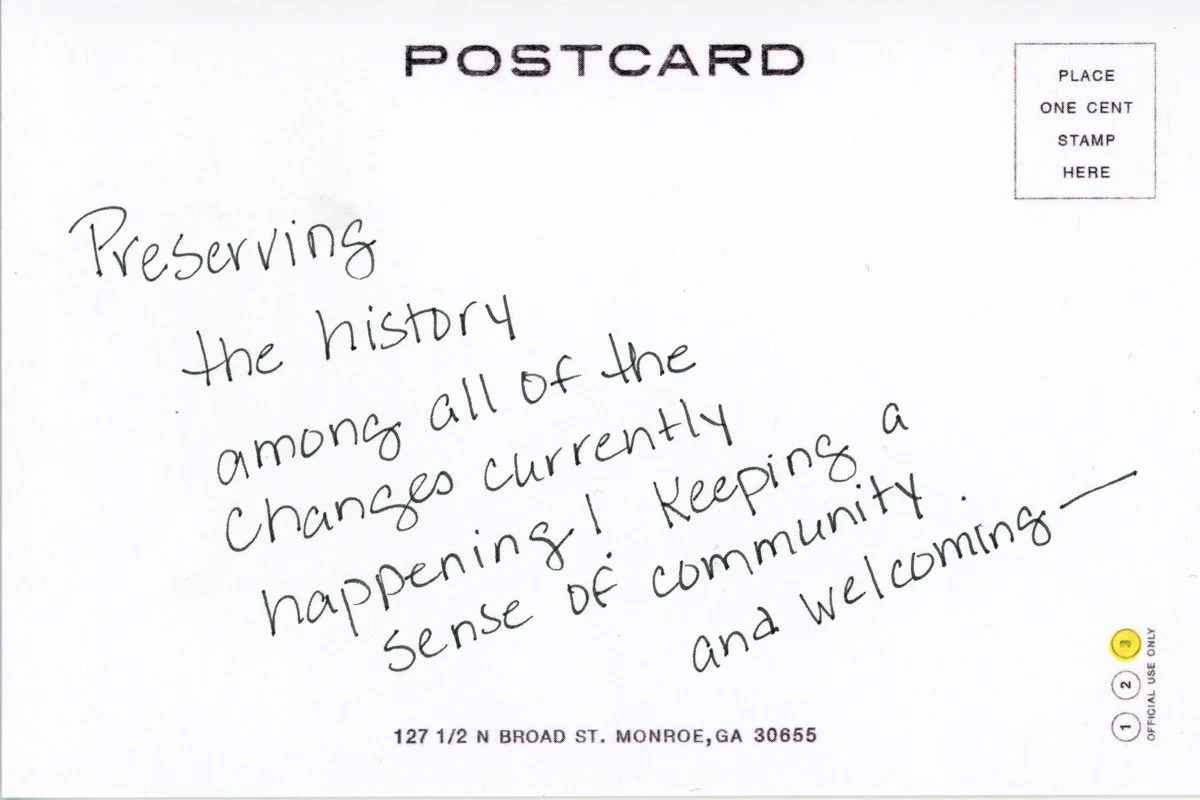 POSTCARD
PLACE
ONE CENT
STAMP
HERE
Preserving
the history
among all of the
changes currently
happening! Keeping a
sense of community.
and welcoming—
127 1/2 N BROAD ST. MONROE, GA 30655
1 2 3
OFFICIAL USE ONLY